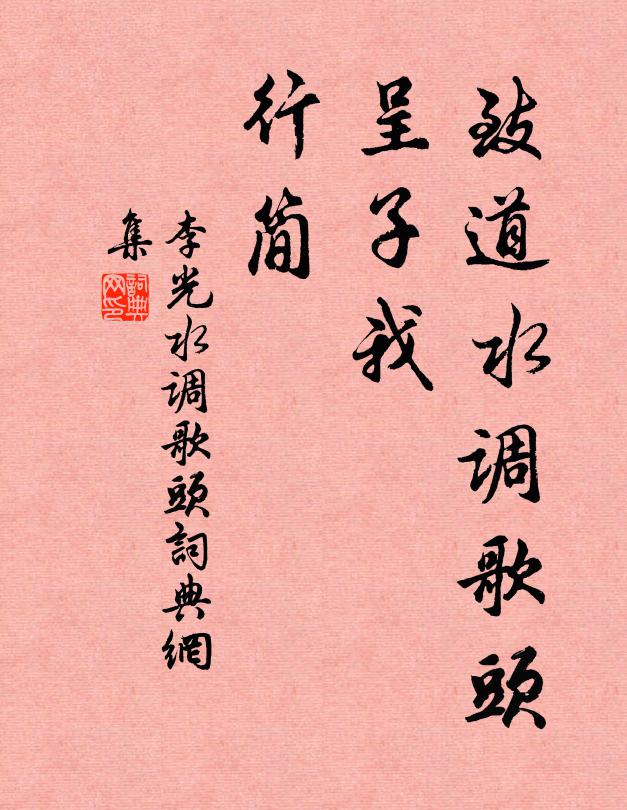 致道水调歌頭
呈子我
行简
李光水调歌頭詞典網
集
詞典網印